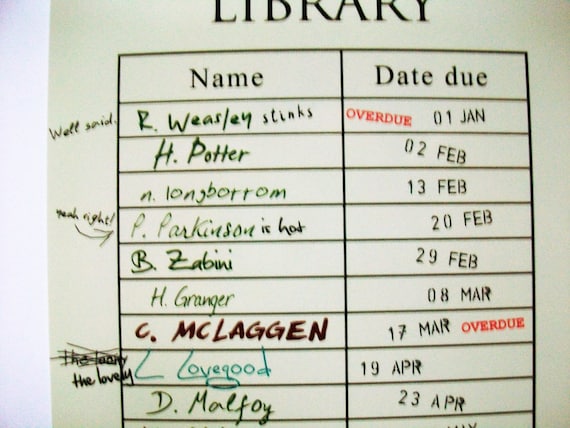 LIBRARY
Name Date due
Well said. R. Weasley stinks OVERDUE 01 JAN
H. Potter 02 FEB
n. longborrom 13 FEB
yeah right! P. Parkinson is hot 20 FEB
B. Zabini 29 FEB
H. Granger 08 MAR
C. MCLAGGEN 17 MAR OVERDUE
the loony
the lovely L Lovegood 19 APR
D. Malfoy 23 APR